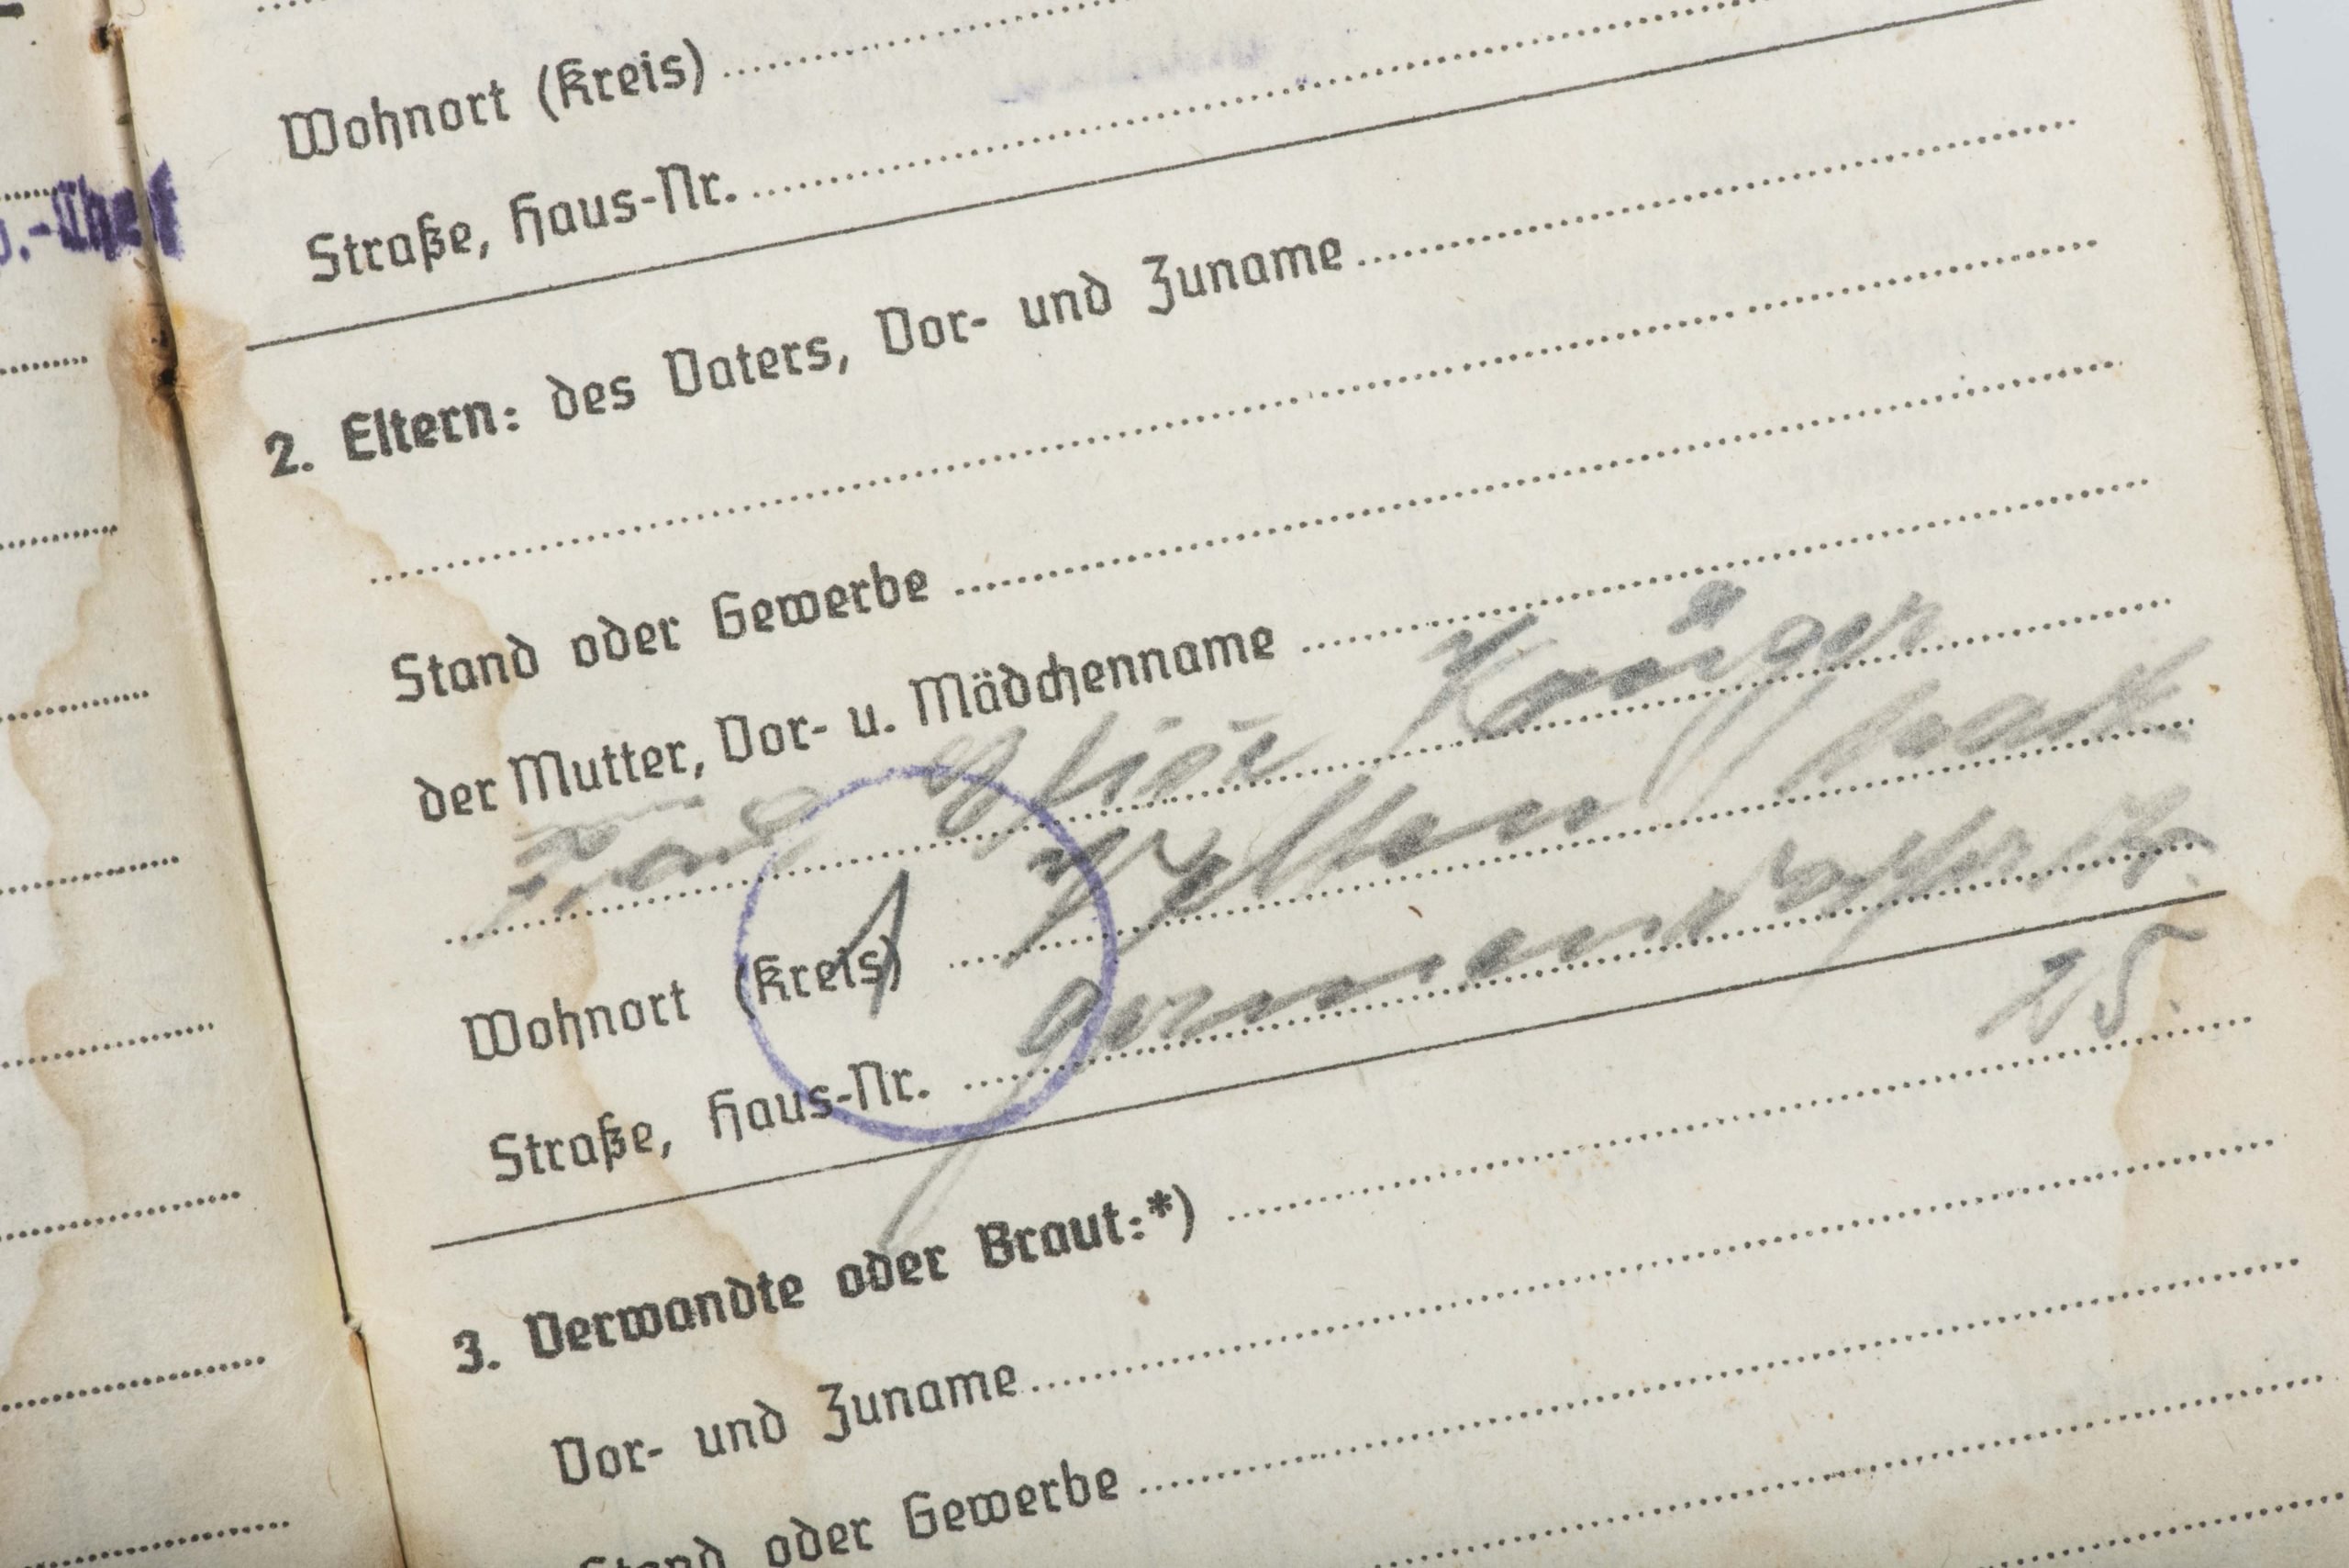 .-Chef
Wohnort (Kreis)
Straße, Haus-Nr.
2. Eltern: des Vaters, Vor- und Zuname
Stand oder Gewerbe
der Mutter, Vor- u. Mädchenname
Frau Krüger
Wohnort (Kreis) Velten
Straße, Haus-Nr.
25.
3. Verwandte oder Braut:*)
Vor- und Zuname
Stand oder Gewerbe